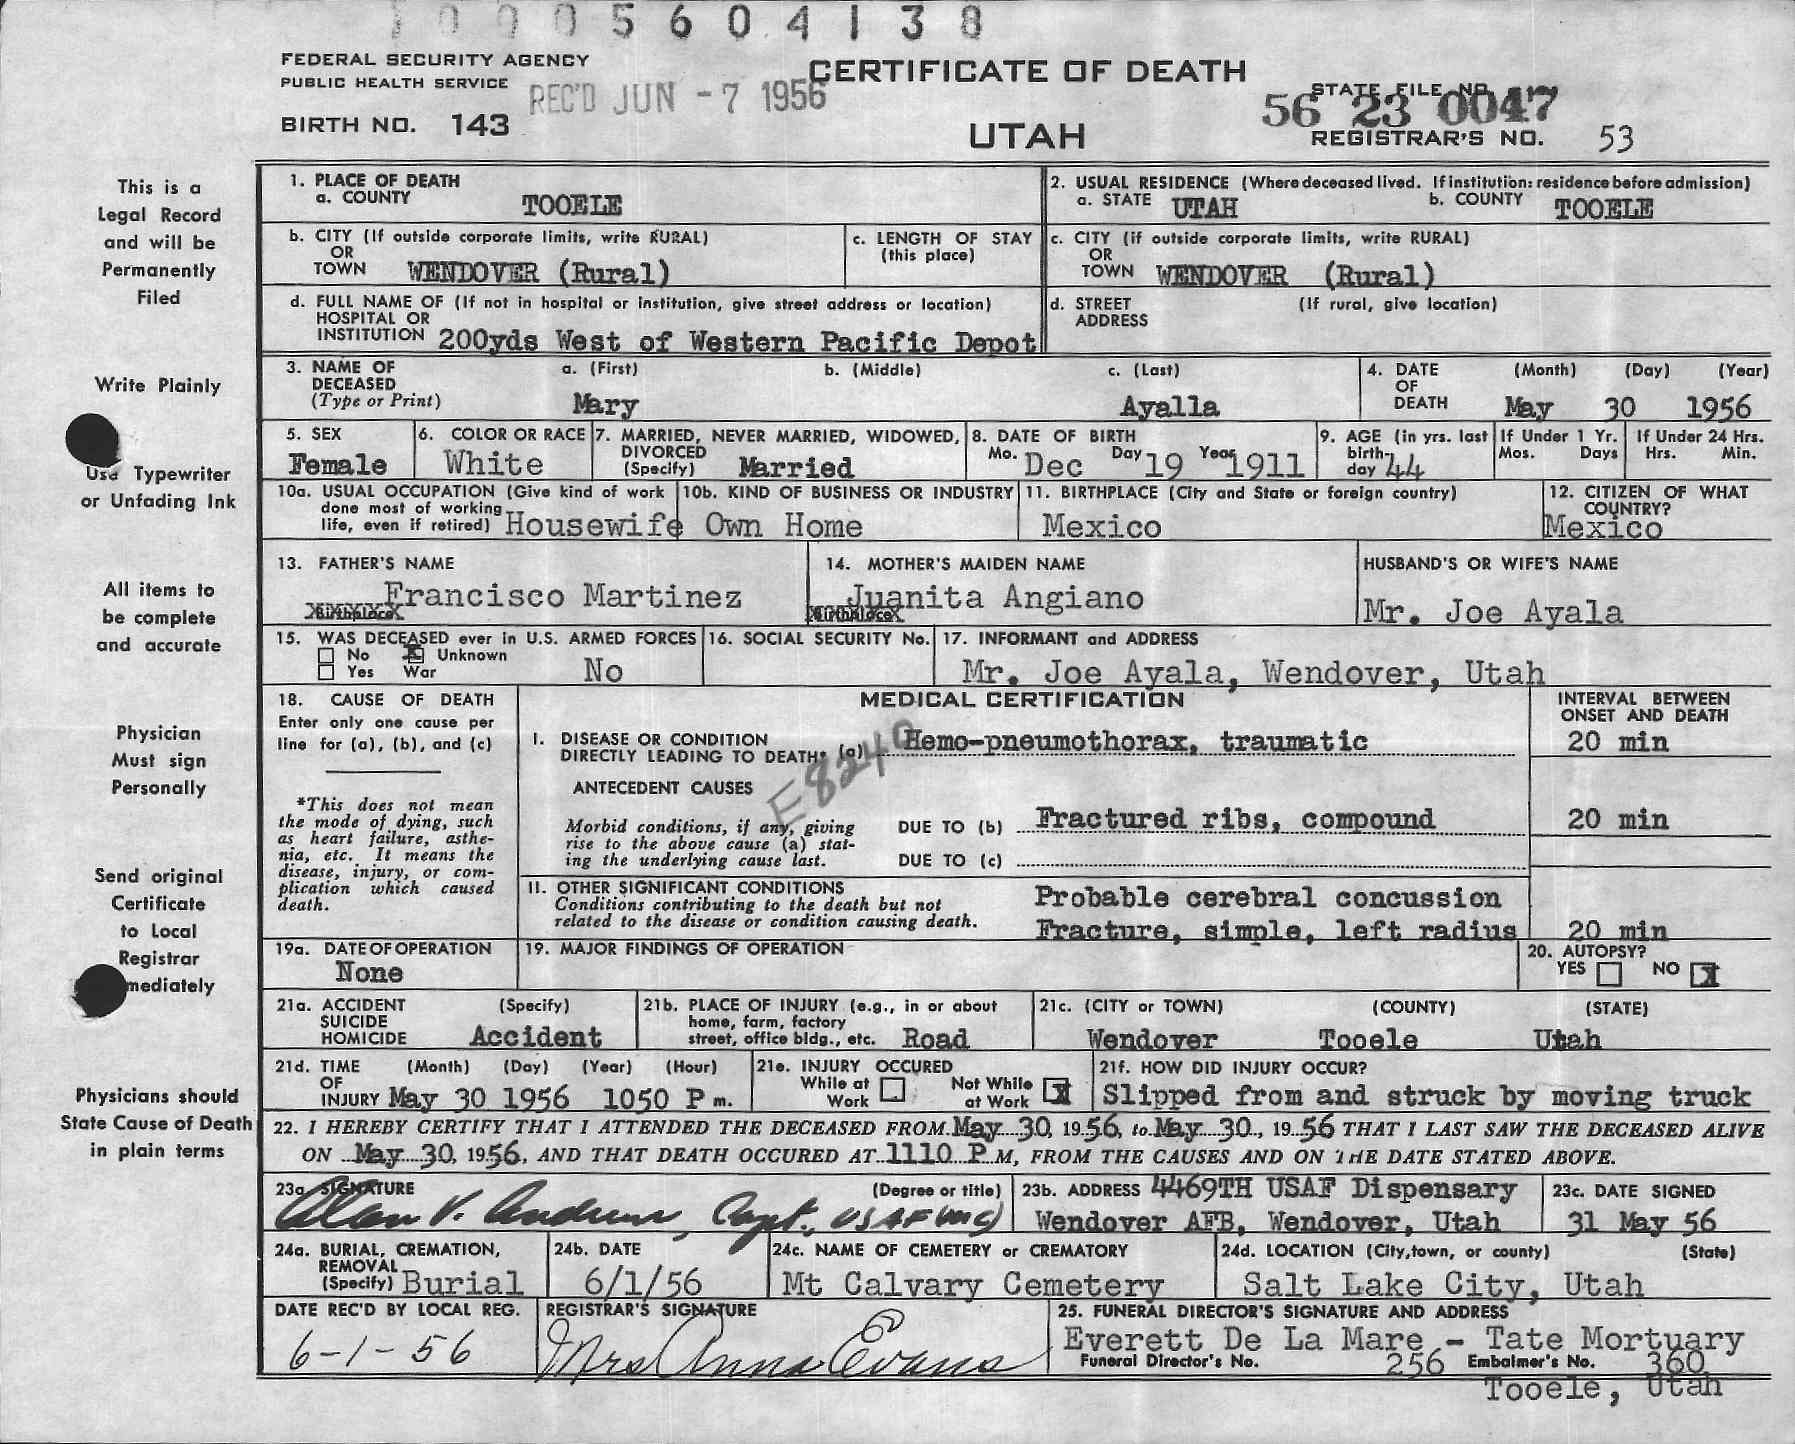 1 0 0 0 5 6 0 4 1 3 8
FEDERAL SECURITY AGENCY
PUBLIC HEALTH SERVICE
REC'D JUN - 7 1956
CERTIFICATE OF DEATH
STATE FILE NO.
56 23 0047
BIRTH NO. 143
UTAH
REGISTRAR'S NO. 53
This is a
Legal Record
and will be
Permanently
Filed
Write Plainly
Use Typewriter
or Unfading Ink
All items to
be complete
and accurate
Physician
Must sign
Personally
Send original
Certificate
to Local
Registrar
mediately
Physicians should
State Cause of Death
in plain terms
1. PLACE OF DEATH
a. COUNTY TOOELE
2. USUAL RESIDENCE (Where deceased lived. If institution: residence before admission)
a. STATE UTAH b. COUNTY TOOELE
b. CITY (If outside corporate limits, write RURAL)
OR
TOWN WENDOVER (Rural)
c. LENGTH OF STAY
(this place)
c. CITY (if outside corporate limits, write RURAL)
OR
TOWN WENDOVER (Rural)
d. FULL NAME OF (If not in hospital or institution, give street address or location)
HOSPITAL OR
INSTITUTION 200yds West of Western Pacific Depot
d. STREET (If rural, give location)
ADDRESS
3. NAME OF a. (First) b. (Middle) c. (Last)
DECEASED
(Type or Print) Mary Ayalla
4. DATE (Month) (Day) (Year)
OF
DEATH May 30 1956
5. SEX
Female
6. COLOR OR RACE
White
7. MARRIED, NEVER MARRIED, WIDOWED,
DIVORCED
(Specify) Married
8. DATE OF BIRTH
Mo. Dec Day 19 Year 1911
9. AGE (in yrs. last
birth-
day 44
If Under 1 Yr.
Mos. Days
If Under 24 Hrs.
Hrs. Min.
10a. USUAL OCCUPATION (Give kind of work
done most of working
life, even if retired) Housewife
10b. KIND OF BUSINESS OR INDUSTRY
Own Home
11. BIRTHPLACE (City and State or foreign country)
Mexico
12. CITIZEN OF WHAT
COUNTRY?
Mexico
13. FATHER'S NAME
Francisco Martinez
Birthplace
14. MOTHER'S MAIDEN NAME
Juanita Angiano
Birthplace
HUSBAND'S OR WIFE'S NAME
Mr. Joe Ayala
15. WAS DECEASED ever in U.S. ARMED FORCES
No X Unknown
Yes War No
16. SOCIAL SECURITY No.
17. INFORMANT and ADDRESS
Mr. Joe Ayala, Wendover, Utah
18. CAUSE OF DEATH
Enter only one cause per
line for (a), (b), and (c)
*This does not mean
the mode of dying, such
as heart failure, asthe-
nia, etc. It means the
disease, injury, or com-
plication which caused
death.
MEDICAL CERTIFICATION
INTERVAL BETWEEN
ONSET AND DEATH
I. DISEASE OR CONDITION
DIRECTLY LEADING TO DEATH* (a) Hemo-pneumothorax, traumatic 20 min
E8240
ANTECEDENT CAUSES
Morbid conditions, if any, giving
rise to the above cause (a) stat-
ing the underlying cause last.
DUE TO (b) Fractured ribs, compound 20 min
DUE TO (c)
II. OTHER SIGNIFICANT CONDITIONS
Conditions contributing to the death but not
related to the disease or condition causing death.
Probable cerebral concussion
Fracture, simple, left radius 20 min
19a. DATE OF OPERATION
None
19. MAJOR FINDINGS OF OPERATION
20. AUTOPSY?
YES NO X
21a. ACCIDENT (Specify)
SUICIDE
HOMICIDE Accident
21b. PLACE OF INJURY (e.g., in or about
home, farm, factory
street, office bldg., etc. Road
21c. (CITY or TOWN) (COUNTY) (STATE)
Wendover Tooele Utah
21d. TIME (Month) (Day) (Year) (Hour)
OF
INJURY May 30 1956 1050 P m.
21e. INJURY OCCURED
While at Work Not While at Work X
21f. HOW DID INJURY OCCUR?
Slipped from and struck by moving truck
22. I HEREBY CERTIFY THAT I ATTENDED THE DECEASED FROM May 30, 1956, to May 30, 1956 THAT I LAST SAW THE DECEASED ALIVE
ON May 30, 1956, AND THAT DEATH OCCURED AT 1110 P M, FROM THE CAUSES AND ON THE DATE STATED ABOVE.
23a. SIGNATURE (Degree or title)
Alan V. Andrews, Capt., USAF (MC)
23b. ADDRESS 4469TH USAF Dispensary
Wendover AFB, Wendover, Utah
23c. DATE SIGNED
31 May 56
24a. BURIAL, CREMATION,
REMOVAL
(Specify) Burial
24b. DATE
6/1/56
24c. NAME OF CEMETERY or CREMATORY
Mt Calvary Cemetery
24d. LOCATION (City, town, or county) (State)
Salt Lake City, Utah
DATE REC'D BY LOCAL REG.
6-1-56
REGISTRAR'S SIGNATURE
Mrs Anna Evans
25. FUNERAL DIRECTOR'S SIGNATURE AND ADDRESS
Everett De La Mare - Tate Mortuary
Funeral Director's No. 256 Embalmer's No. 360
Tooele, Utah